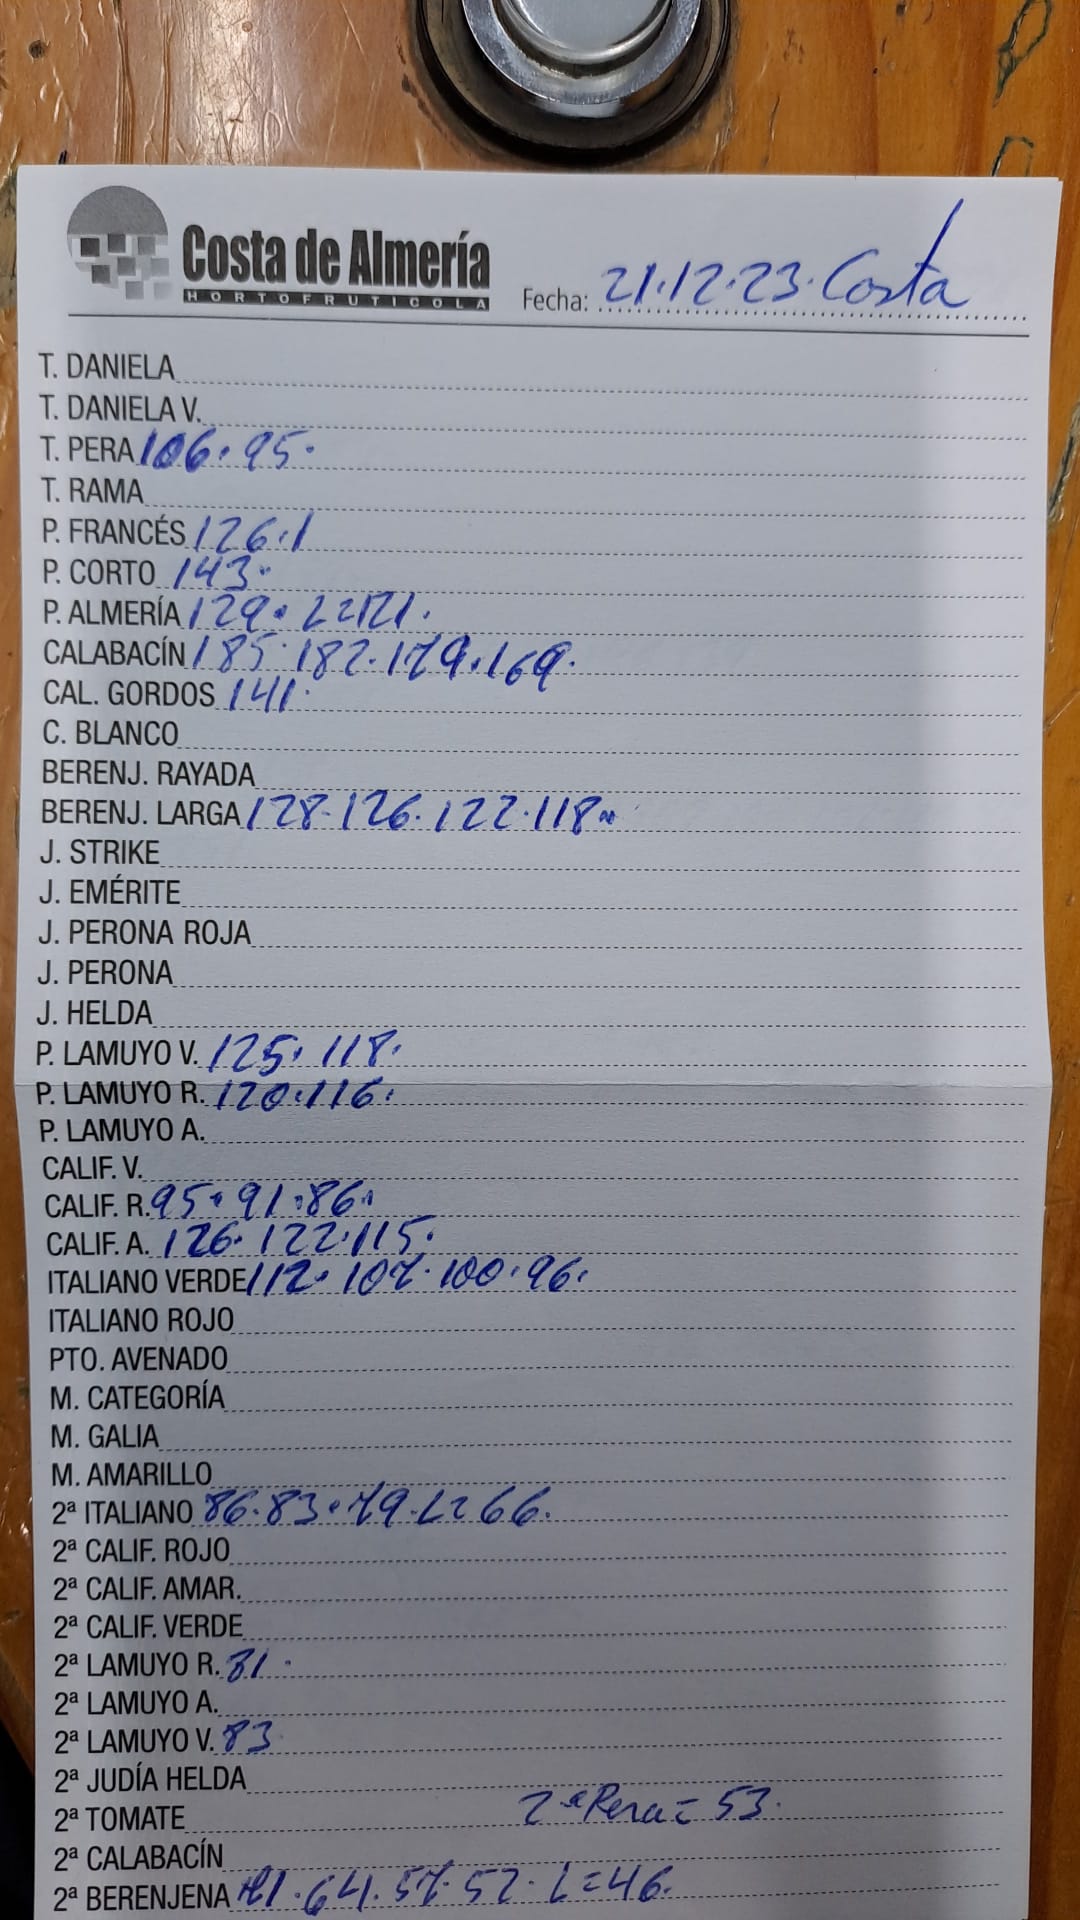 Costa de Almería
HORTOFRUTICOLA
Fecha: 21.12.23. Costa
T. DANIELA
T. DANIELA V.
T. PERA 106. 95.
T. RAMA
P. FRANCÉS 126.1
P. CORTO 143.
P. ALMERÍA 129. L=121.
CALABACÍN 185. 182. 179. 169.
CAL. GORDOS 141.
C. BLANCO
BERENJ. RAYADA
BERENJ. LARGA 128. 126. 122. 118.
J. STRIKE
J. EMÉRITE
J. PERONA ROJA
J. PERONA
J. HELDA
P. LAMUYO V. 125. 118.
P. LAMUYO R. 120. 116.
P. LAMUYO A.
CALIF. V.
CALIF. R. 95. 91. 86.
CALIF. A. 126. 122. 115.
ITALIANO VERDE 112. 107. 100. 96.
ITALIANO ROJO
PTO. AVENADO
M. CATEGORÍA
M. GALIA
M. AMARILLO
2ª ITALIANO 86. 83. 79. L=66.
2ª CALIF. ROJO
2ª CALIF. AMAR.
2ª CALIF. VERDE
2ª LAMUYO R. 81.
2ª LAMUYO A.
2ª LAMUYO V. 83
2ª JUDÍA HELDA
2ª TOMATE 2ª Pera = 53.
2ª CALABACÍN
2ª BERENJENA 71. 64. 57. 52. L=46.